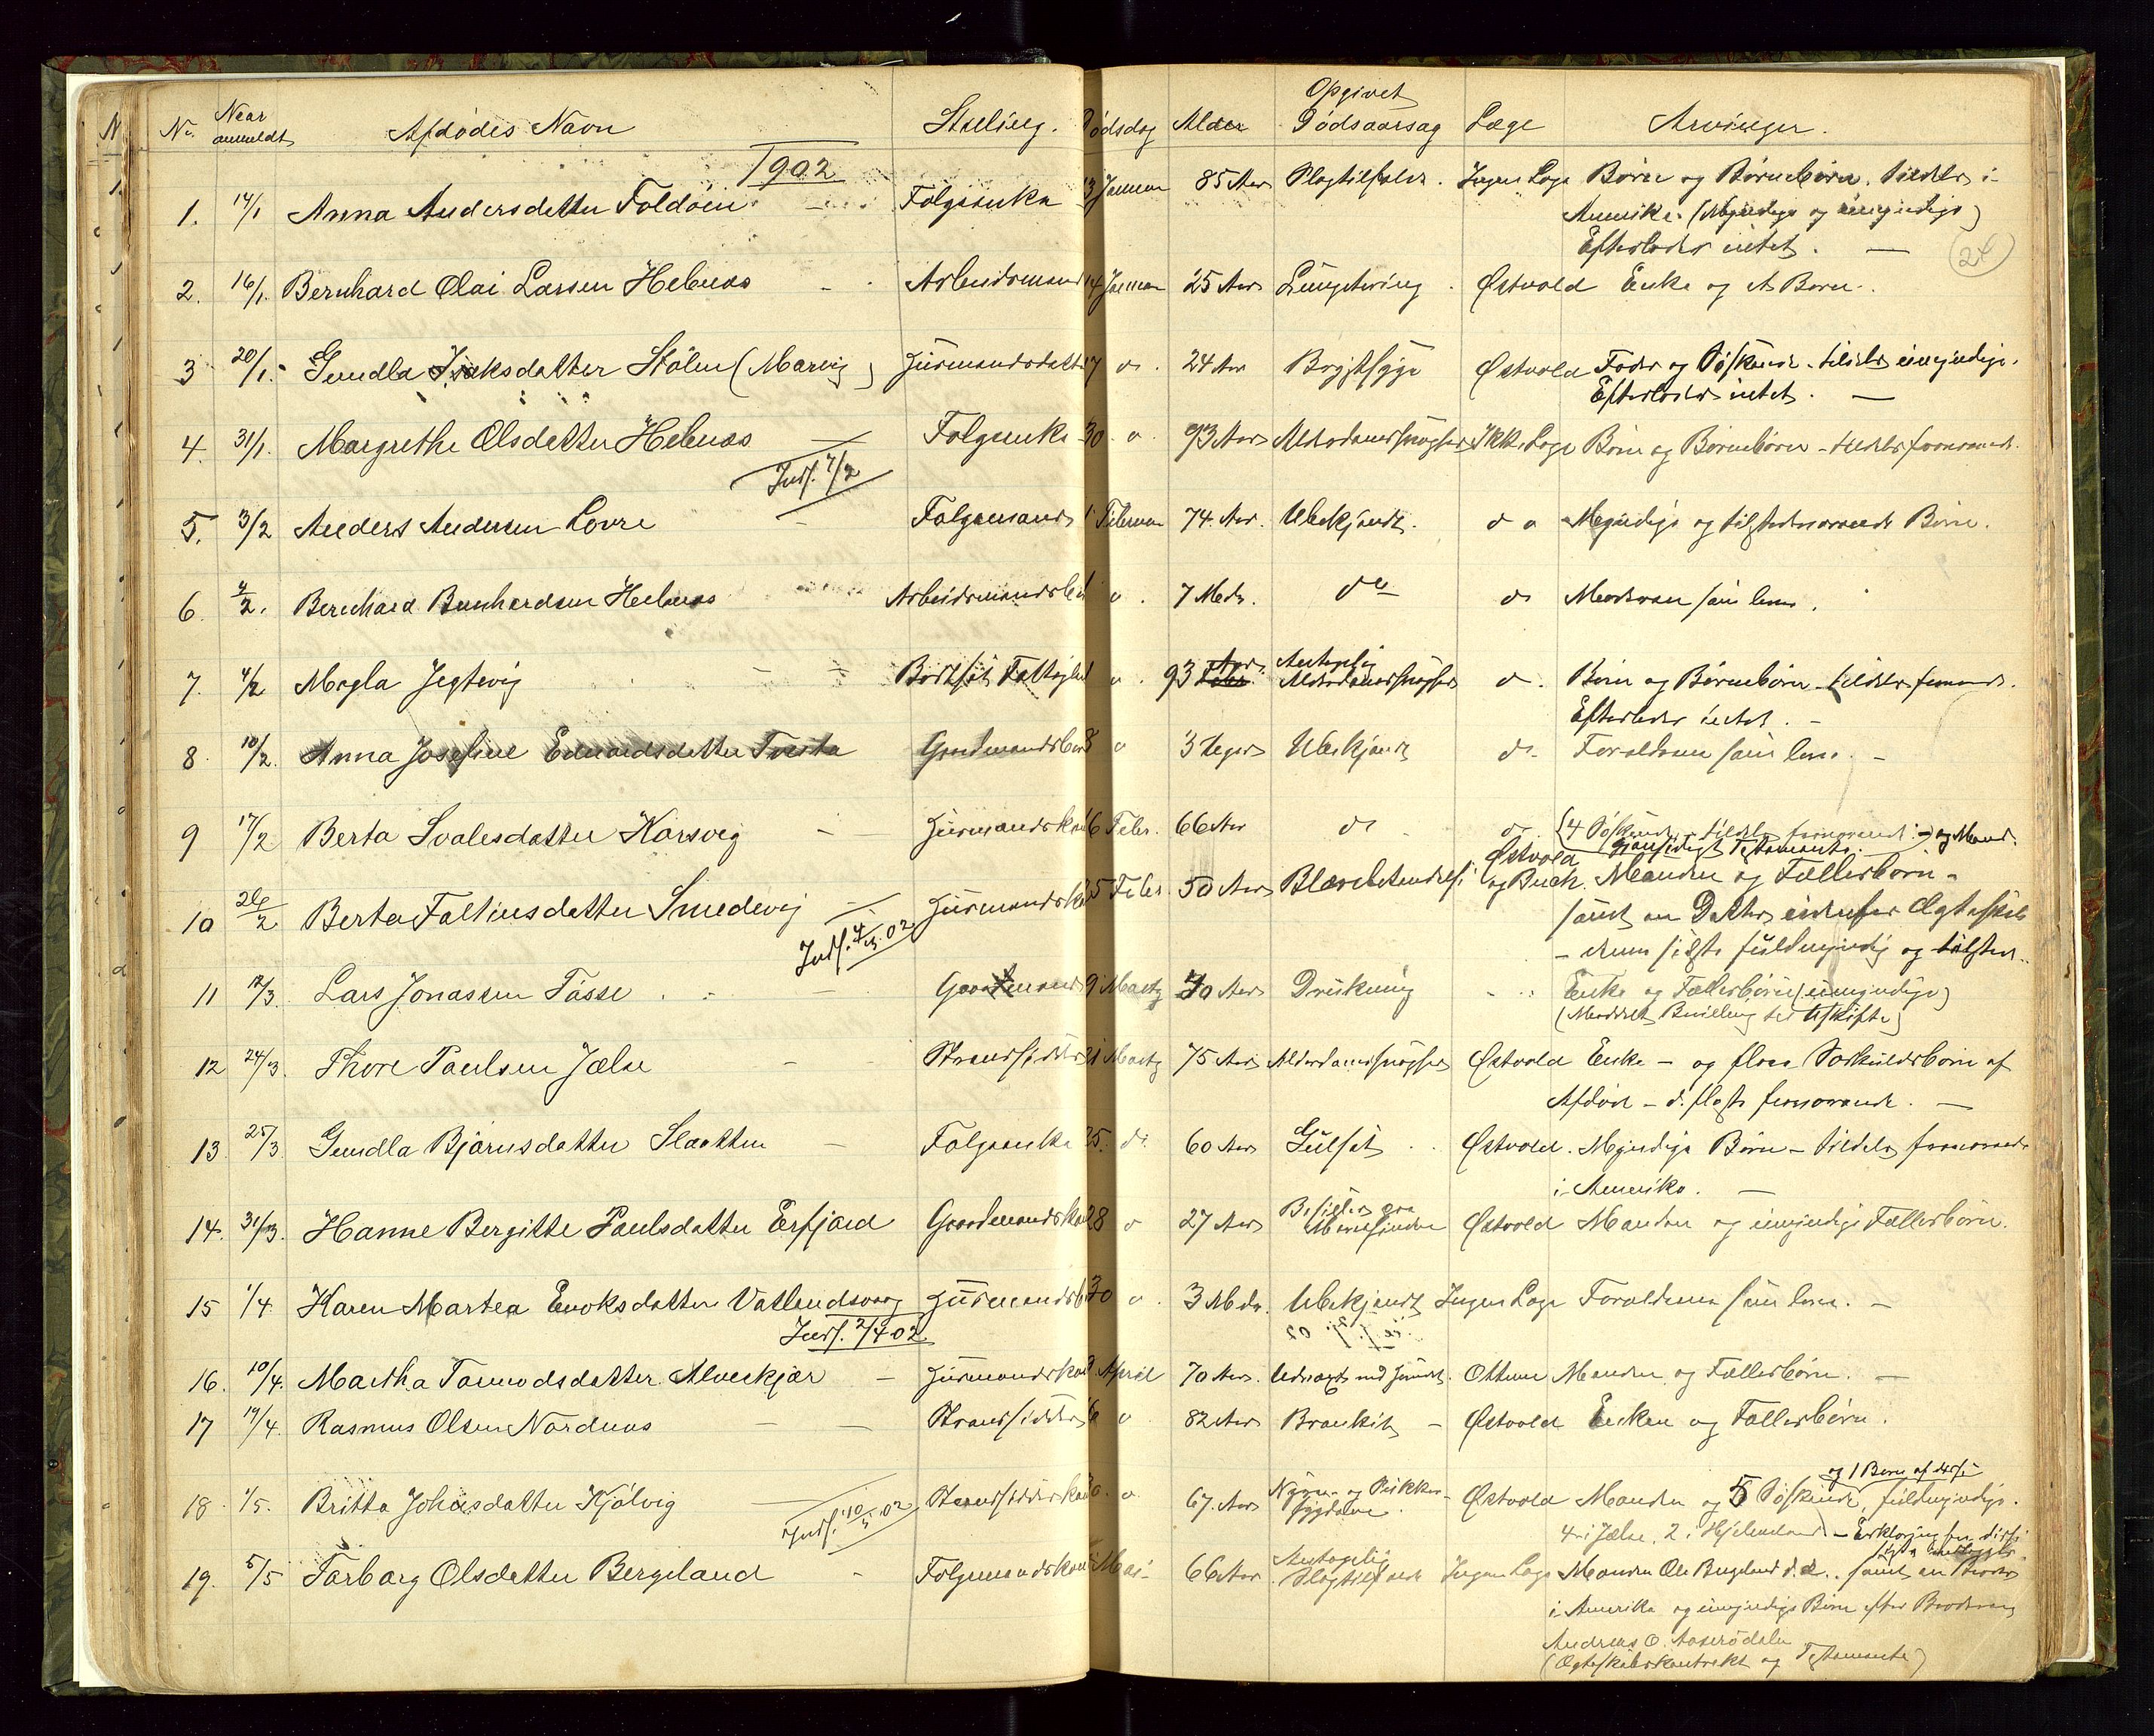 Opgivet
No. Naar anmeldt Afdødes Navn Stilling. Dødsdag Alder Dødsaarsag Læge Arvinger.
1902
1. 14/1 Anna Andersdatter Foldøen Folgeenke 13 Januar 85 Aar Slagtilfælde. Ingen Læge Børn og Børnebørn, tildels i
Amerika (Myndige og umyndige)
Efterlader intet. —
24
2. 16/1. Bernhard Olai Larsen Hebnes Arbeidsmand 14 Januar 25 Aar Lungetæring Østvold Enke og et Barn.
3 20/1. Gundla Isaksdatter Stølen (Marvig) Husmandsdatter 17 do. 24 Aar Brystsyge Østvold Fader og Søskende, tildels umyndige.
Efterlader intet. —
4. 31/1. Margrethe Olsdatter Hebnes Folgeenke 30. do. 93 Aar Alderdomssvaghed Ikke Læge Børn og Børnebørn - tildels fraværende.
Inds. 7/2
5. 3/2 Anders Andersen Lovre Folgemand 1 Februar 74 Aar. Ubekjendt. do Myndige og tilstedeværende Børn.
6. 4/2. Bernhard Bernhardsen Hebnes Arbeidsmandsbarn 1 do. 7 Mdr. do do Moderen som lever.
7. 4/2 Magla Jegtevig 1 do. 93 Aar Antagelig Alderdomssvaghed do. Børn og Børnebørn tildels fravær.
Efterlader intet. -
8. 10/2. Anna Josefine Edvardsdatter Tveita Gaardmandsbarn 8 do 3 Uger Ubekjendt do. Forældrene som lever. -
9 17/2 Berta Soalesdatter Karsveg Husmandskone 16 Febr. 66 Aar do do. (4 Søskende, tildels fraværende.) og Mand.
gjensidigt Testamente.
10 26/2 Berta Faltinsdatter Smedevig Husmandskone 25 Febr. 50 Aar Blærebetændelse Østvold og Buch. Manden og Fællesbørn -
samt en Datter udenfor Ægteskab
- denne sidste fuldmyndig og tilsted..
Inds. 4/3.02
11 12/3. Lars Jonassen Tøsse Gaardmand 9 Marts 30 Aar Drukning Enke og Fællesbørn (umyndige)
(Meddelt Bevilling til Uskifte)
12 24/3. Thore Paulsen Jælse Strandsidder 21 Marts 75 Aar Alderdomssvaghed Østvold Enke - og flere Særkuldsbørn af
Afdøde - d. fleste fraværende. —
13. 25/3. Gundla Bjørnsdatter Slaatten Folgeenke 25. do. 60 Aar Gulsot Østvold. Myndige Børn - tildels fraværende
i Amerika. —
14. 31/3. Hanne Bergitte Paulsdatter Erfjord Gaardmandskone 28 do 27 Aar Østvold Manden og umyndige Fællesbørn.
15 1/4. Karen Martea Enoksdatter Vatlandsvaag Husmandsb 30 do. 3 Mdr. Ubekjendt Ingen Læge Forældrene som lever. -
Inds. 2/4 02
16. 10/4. Martha Tormodsdatter Alveskjær Husmandskone April 70 Aar. Ottem Manden og Fællesbørn. —
17 19/4. Rasmus Olsen Nordnes Strandsidder 16 do 82 Aar Bronkit Østvold Enken og Fællesbørn.
18. 1/5. Britta Johnsdatter Kjølvig Strandsidderskone 30. do. 67. Aar Nyre- og Østvold Manden og 5 Søskende, fuldmyndige.
og 1 Barn af
4 i Jælse, 2 i Hjelmeland - Erklæring fra disse
Inds. 10/5 02
19. 5/5 Torborg Olsdatter Bergeland Folgemandskone Mai 66 Aar Antagelig Slagtilfælde Ingen Læge Manden Ole Bergeland samt en Broder
i Amerika og umyndige Børn efter Broderen
Andreas O.
(Ægteskabskontrakt og Testamente)